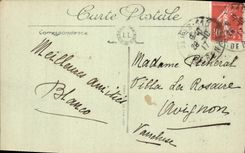 Carte Postale
Correspondance
LL
Meilleures amitiés
Blanco
Madame
Villa La Rosaire
Avignon
Vaucluse